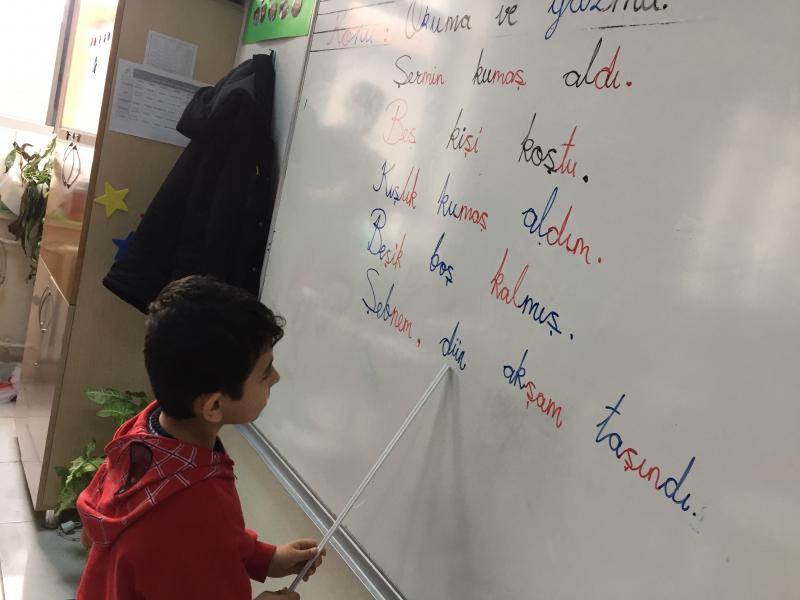 Konu: Okuma ve yazma.
Şermin kumaş aldı.
Beş kişi koştu.
Kışlık kumaş aldım.
Beşik boş kalmış.
Şebnem, dün akşam taşındı.